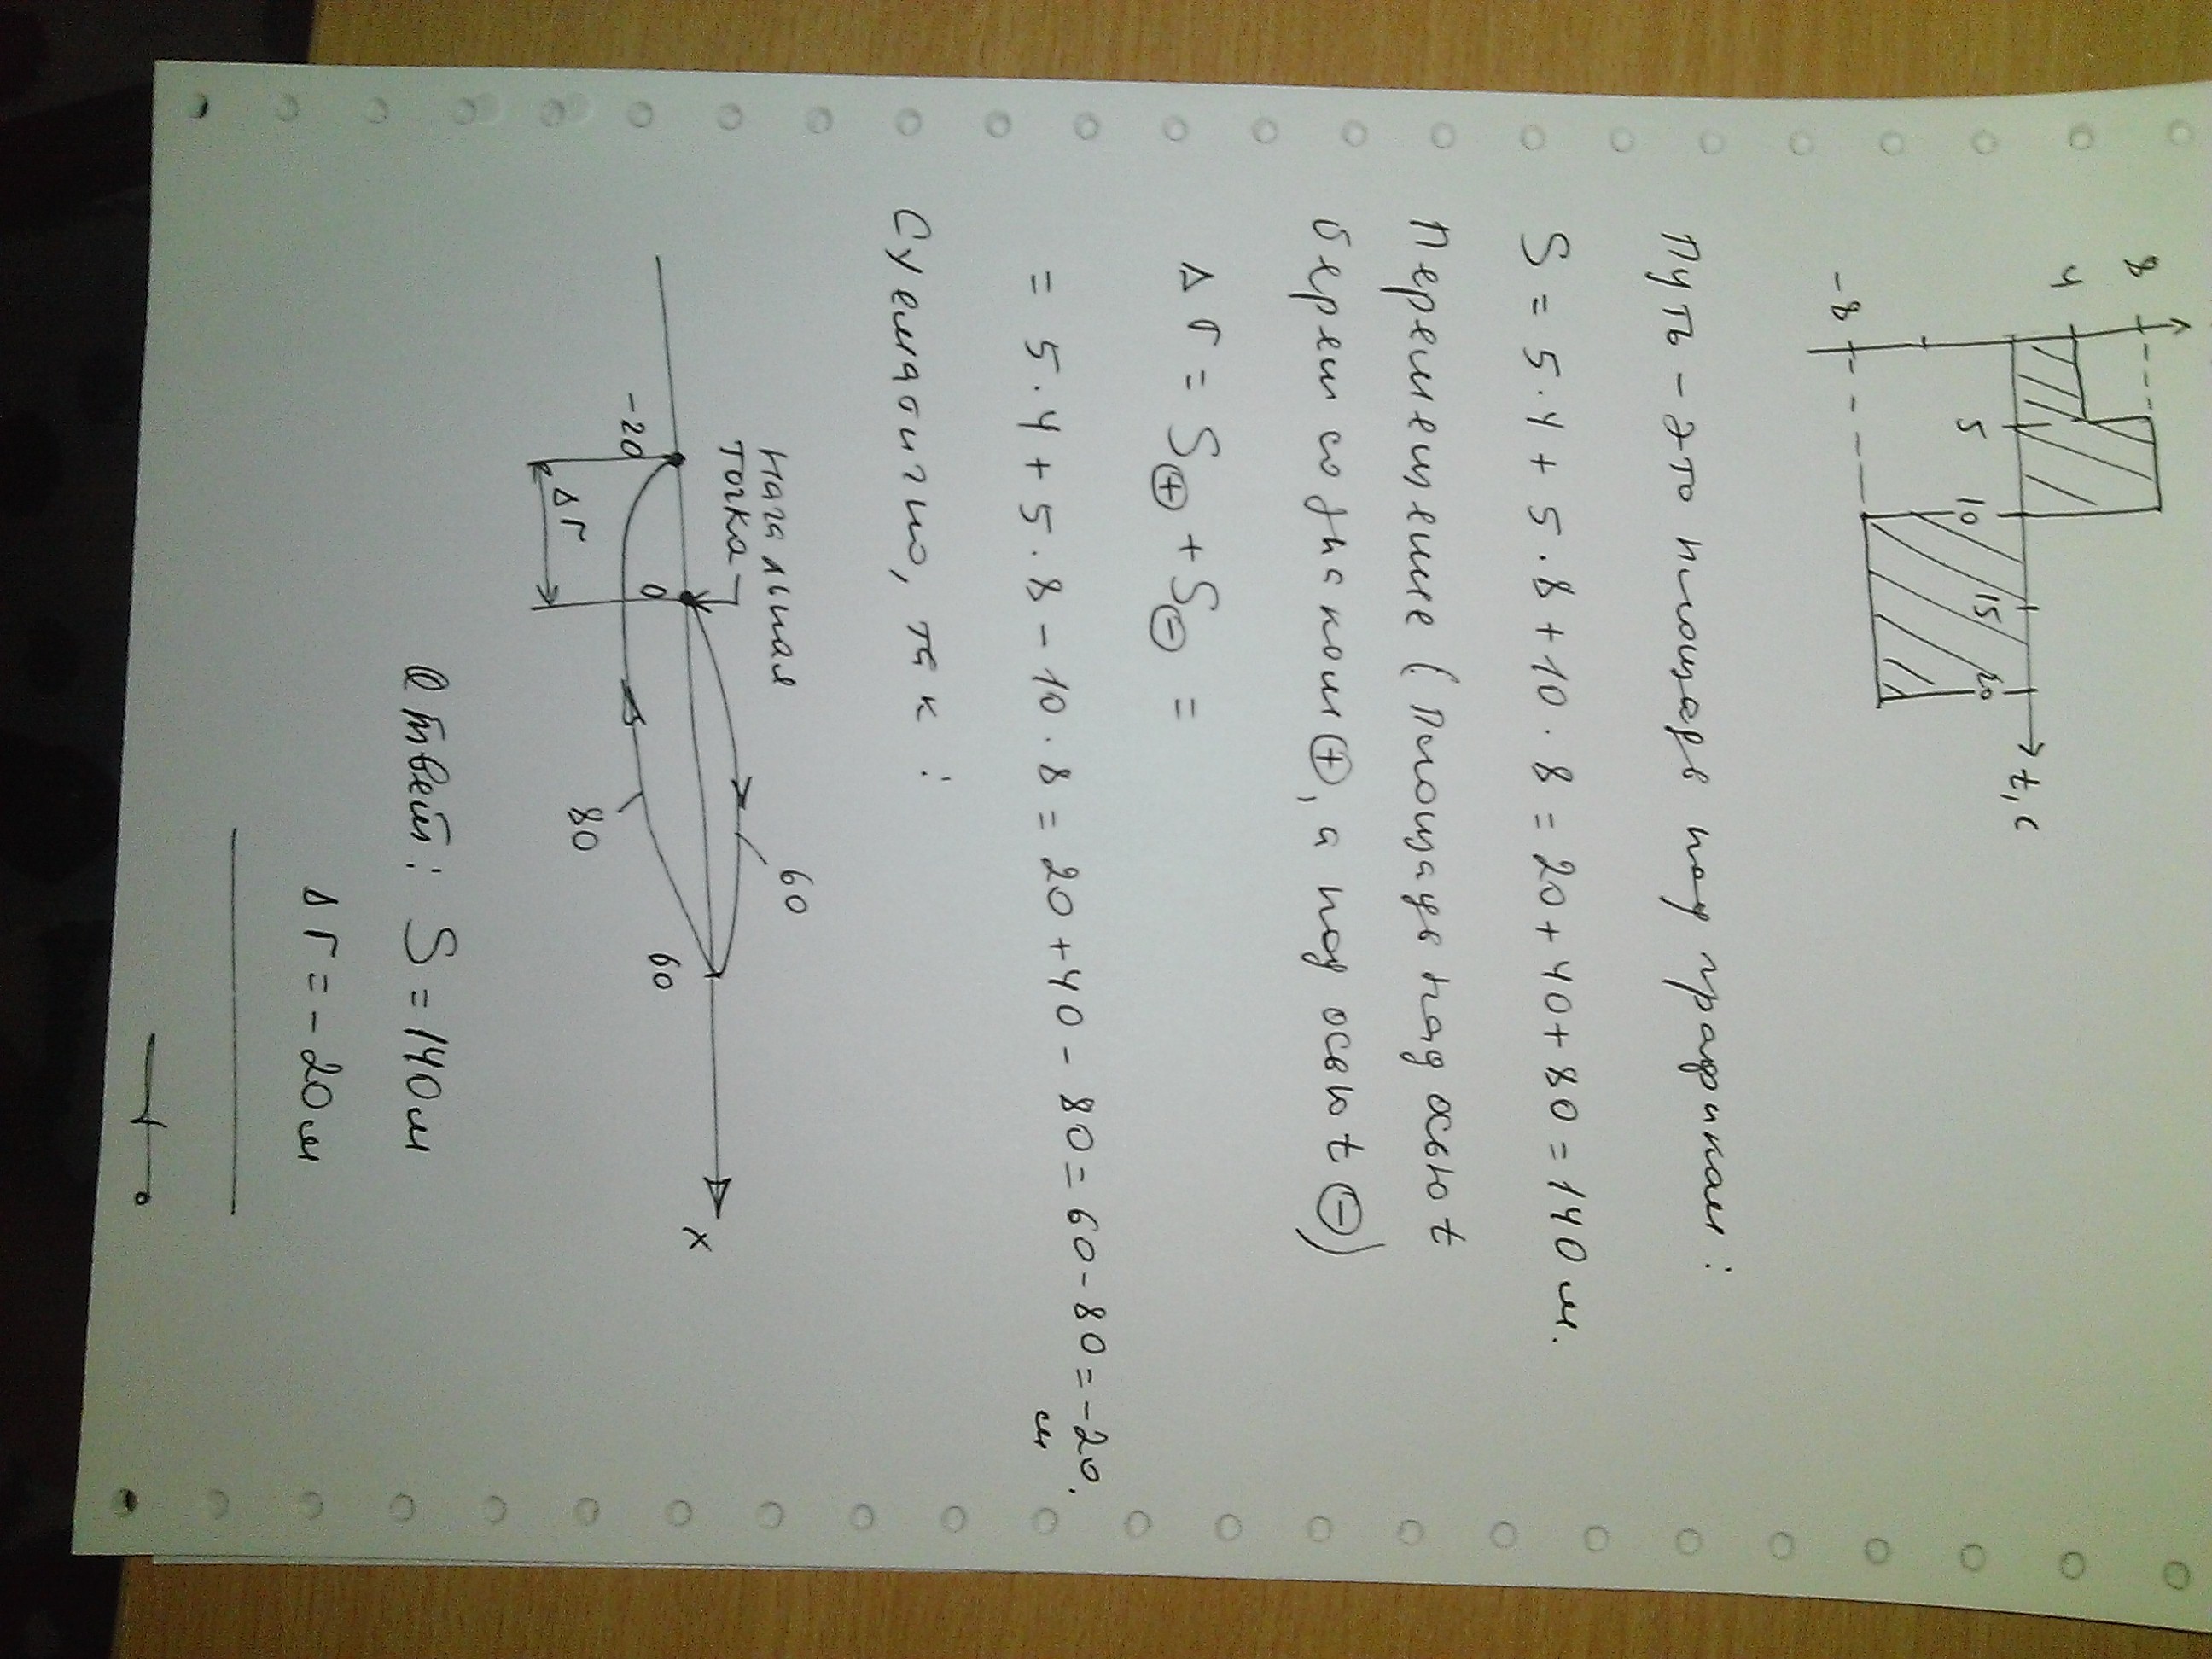 8
4
-8
5
10
15
20
t, c
Путь - это площадь под графиком :
S = 5 · 4 + 5 · 8 + 10 · 8 = 20 + 40 + 80 = 140 м.
Перемещение ( площадь над осью t
берем со знаком ⊕, а под осью t ⊖)
Δ r = S⊕ + S⊖ =
= 5 · 4 + 5 · 8 - 10 · 8 = 20 + 40 - 80 = 60 - 80 = -20.
м
Схематично, так :
Начальная
точка
60
-20
0
60
x
80
Δ r
Ответ : S = 140 м
Δ r = - 20 м